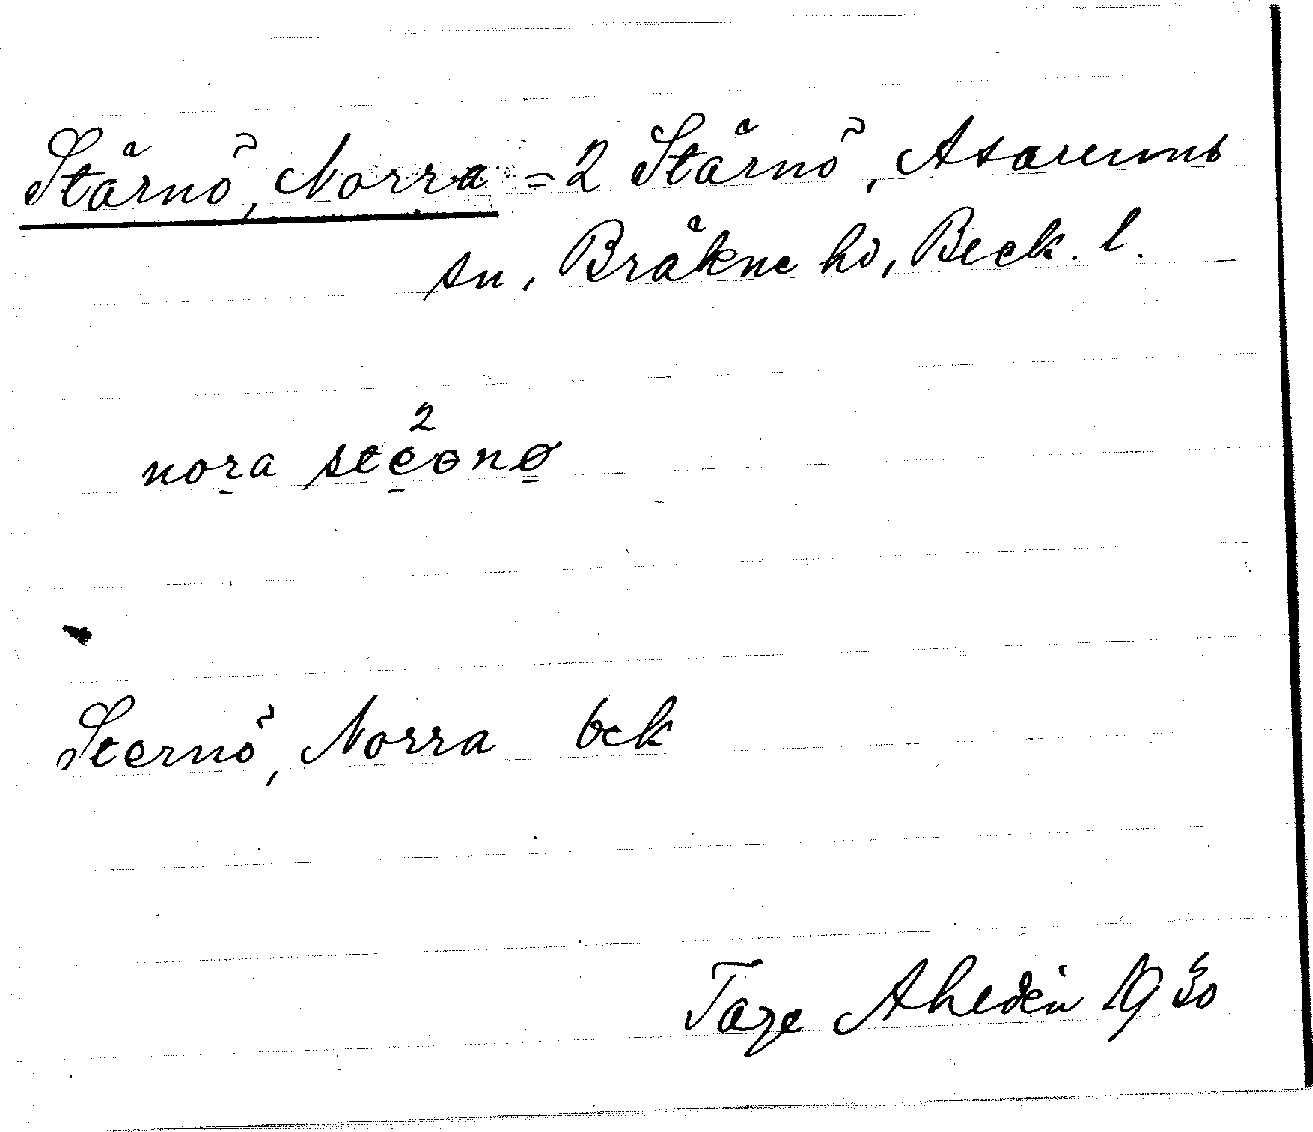 Stärnö, Norra = 2 Stärnö, Asarums
sn, Bräkne hd, Bleck. l.
nora
Sternö, Norra bek
Tage Ahldén 1930